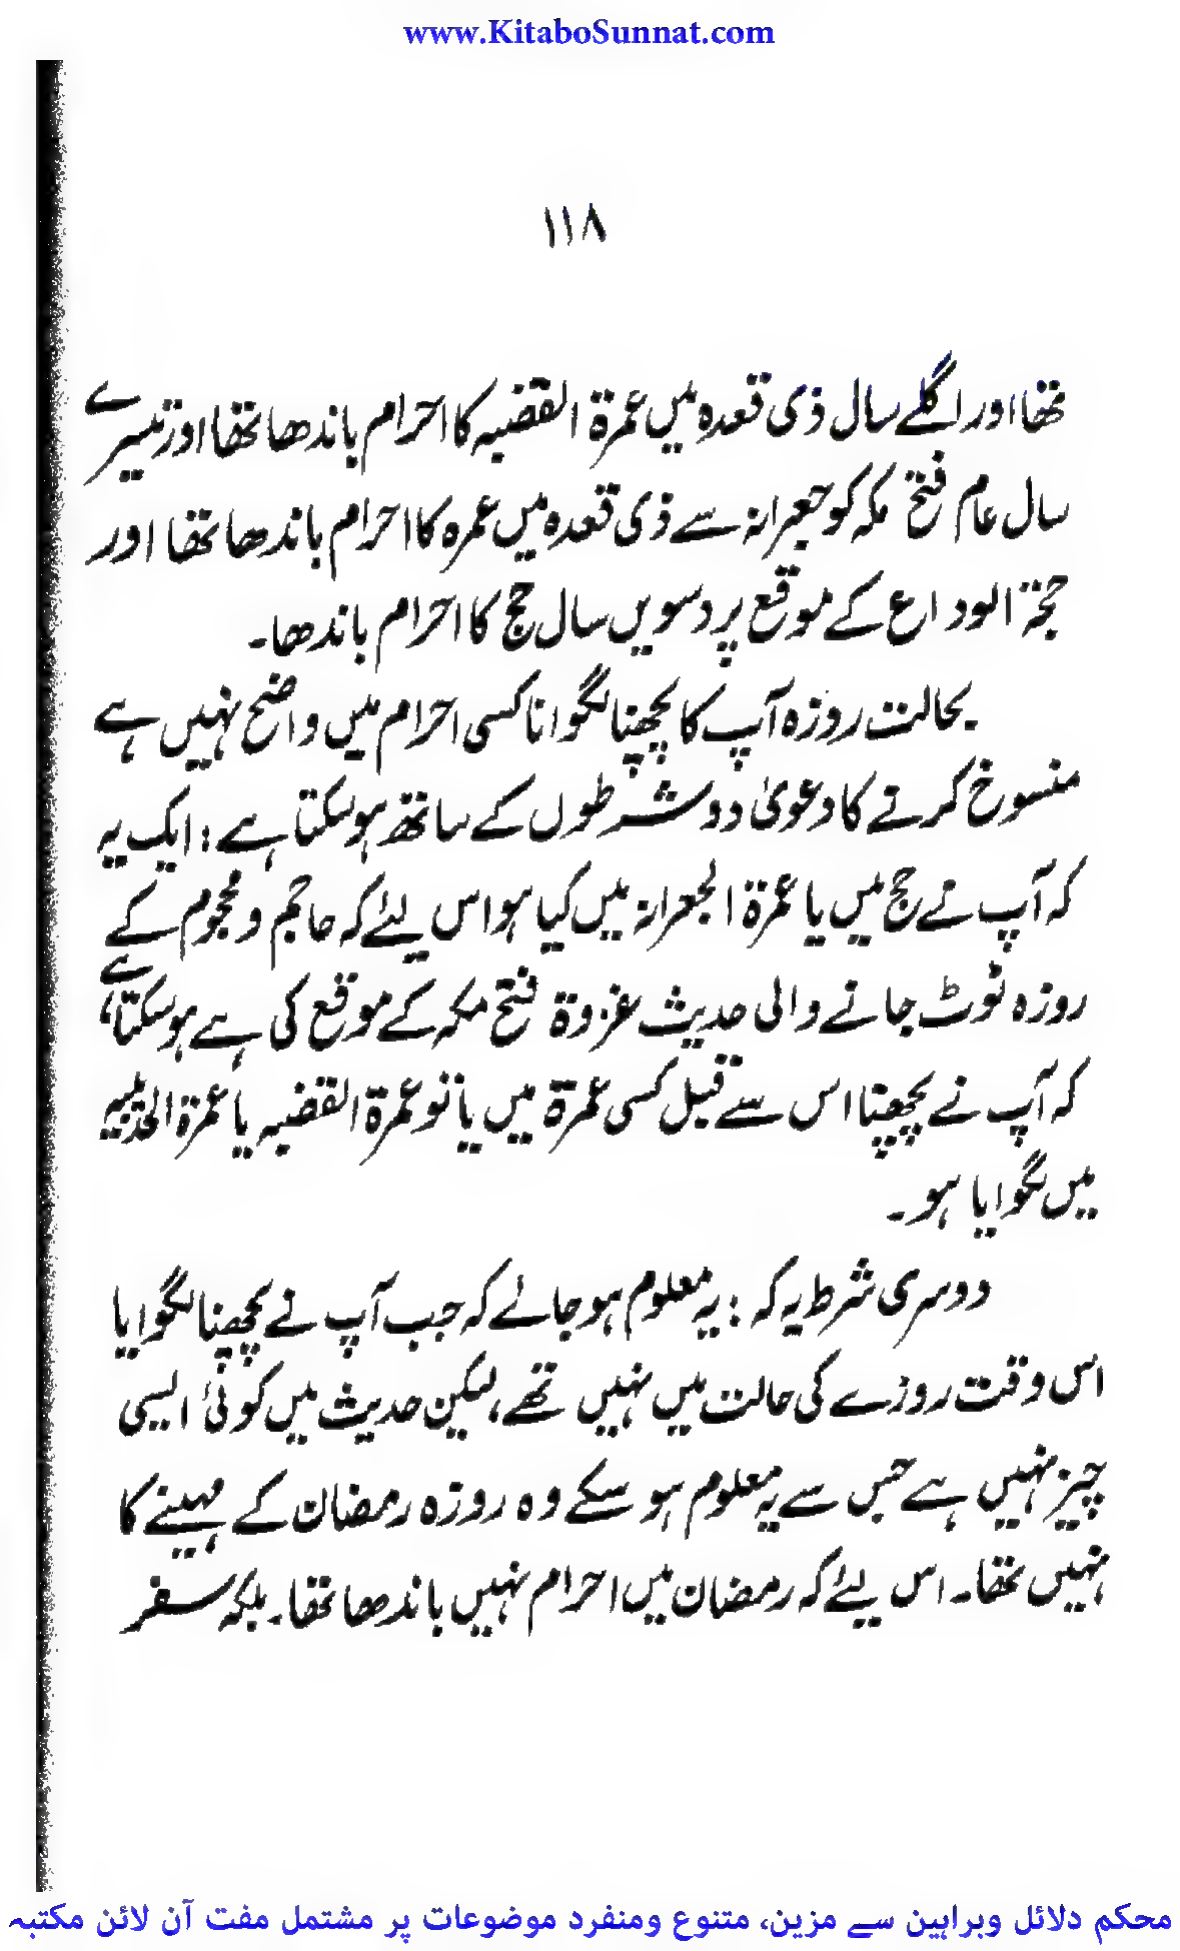 www.KitaboSunnat.com
۱۱۸
تھا اور اگلے سال ذی قعدہ میں عمرۃ القضیہ کا احرام باندھا تھا اور تیسرے
سال عام فتح مکہ کو جعرانہ سے ذی قعدہ میں عمرہ کا احرام باندھا تھا اور
حجۃ الوداع کے موقع پر دسویں سال حج کا احرام باندھا۔
بحالت روزہ آپ کا پچھنا لگوانا کسی احرام میں واضح نہیں ہے
منسوخ کرنے کا دعویٰ دو شرطوں کے ساتھ ہو سکتا ہے : ایک یہ
کہ آپ نے حج میں یا عمرۃ الجعرانہ میں کیا ہو اس لیئے کہ حاجم و محجوم کے
روزہ ٹوٹ جانے والی حدیث غزوۃ فتح مکہ کے موقع کی ہے ہو سکتا ہے،
کہ آپ نے پچھنا اس سے قبل کسی عمرۃ میں یا تو عمرۃ القضیہ یا عمرۃ الحدیبیہ
میں لگوایا ہو۔
دوسری شرط یہ کہ : یہ معلوم ہو جائے کہ جب آپ نے پچھنا لگوایا
اس وقت روزے کی حالت میں نہیں تھے، لیکن حدیث میں کوئی ایسی
چیز نہیں ہے جس سے یہ معلوم ہو سکے وہ روزہ رمضان کے مہینے کا
نہیں تھا۔ اس لیئے کہ رمضان میں احرام نہیں باندھا تھا۔ بلکہ سفر
محکم دلائل وبراہین سے مزین، متنوع ومنفرد موضوعات پر مشتمل مفت آن لائن مکتبہ